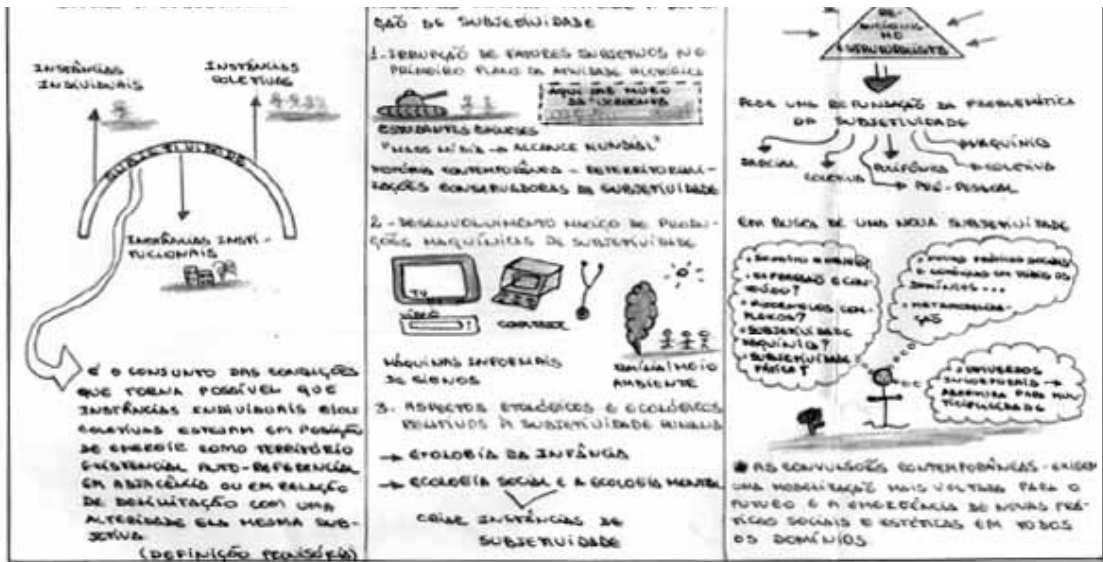 INSTÂNCIAS
INDIVIDUAIS
INSTÂNCIAS
COLETIVAS
SUBJETIVIDADE
INSTÂNCIAS INSTI-
TUCIONAIS
É O CONJUNTO DAS CONDIÇÕES
QUE TORNA POSSÍVEL QUE
INSTÂNCIAS INDIVIDUAIS E/OU
COLETIVAS ESTEJAM EM POSIÇÃO
DE EMERGIR COMO TERRITÓRIO
EXISTENCIAL AUTO-REFERENCIAL
EM ADJACÊNCIA OU EM RELAÇÃO
DE DELIMITAÇÃO COM UMA
ALTERIDADE ELA MESMA SUB-
JETIVA.
(DEFINIÇÃO PROVISÓRIA)
ÇÃO DE SUBJETIVIDADE
1. IRRUPÇÃO DE FATORES SUBJETIVOS NO
PRIMEIRO PLANO DA ATUALIDADE HISTÓRICA
ESTUDANTES CHINESES
"MASS MÍDIA → ALCANCE MUNDIAL"
HISTÓRIA CONTEMPORÂNEA - RETERRITORIALI-
ZAÇÕES CONSERVADORAS DA SUBJETIVIDADE
2 - DESENVOLVIMENTO MACIÇO DE PRODU-
ÇÕES MAQUÍNICAS DE SUBJETIVIDADE
TV
VÍDEO
COMPUTADOR
MÁQUINAS INFORMAIS
DE SIGNOS
FAMÍLIA/MEIO
AMBIENTE
3. ASPECTOS ETOLÓGICOS E ECOLÓGICOS
RELATIVOS À SUBJETIVIDADE HUMANA
→ ETOLOGIA DA INFÂNCIA
→ ECOLOGIA SOCIAL E A ECOLOGIA MENTAL
CRIAR INSTÂNCIAS DE
SUBJETIVIDADE
ESTRUTURALISTA
PEDE UMA REFUNDAÇÃO DA PROBLEMÁTICA
DA SUBJETIVIDADE
PARCIAL
COLETIVA
POLIFÔNICA
PRÉ-PESSOAL
COLETIVA
MAQUÍNICA
EM BUSCA DE UMA NOVA SUBJETIVIDADE
EXPRESSÃO E CON-
TEÚDO?
SUBJETIVIDADE
MAQUÍNICA?
SUBJETIVIDADE
NOVAS PRÁTICAS SOCIAIS
E ESTÉTICAS EM TODOS OS
DOMÍNIOS...
UNIVERSOS
INCORPORAIS →
ABERTURA PARA MUL-
TIPLICIDADE
AS CONVULSÕES CONTEMPORÂNEAS - EXIGEM
UMA MODELIZAÇÃO MAIS VOLTADA PARA O
FUTURO E A EMERGÊNCIA DE NOVAS PRÁ-
TICAS SOCIAIS E ESTÉTICAS EM TODOS
OS DOMÍNIOS.